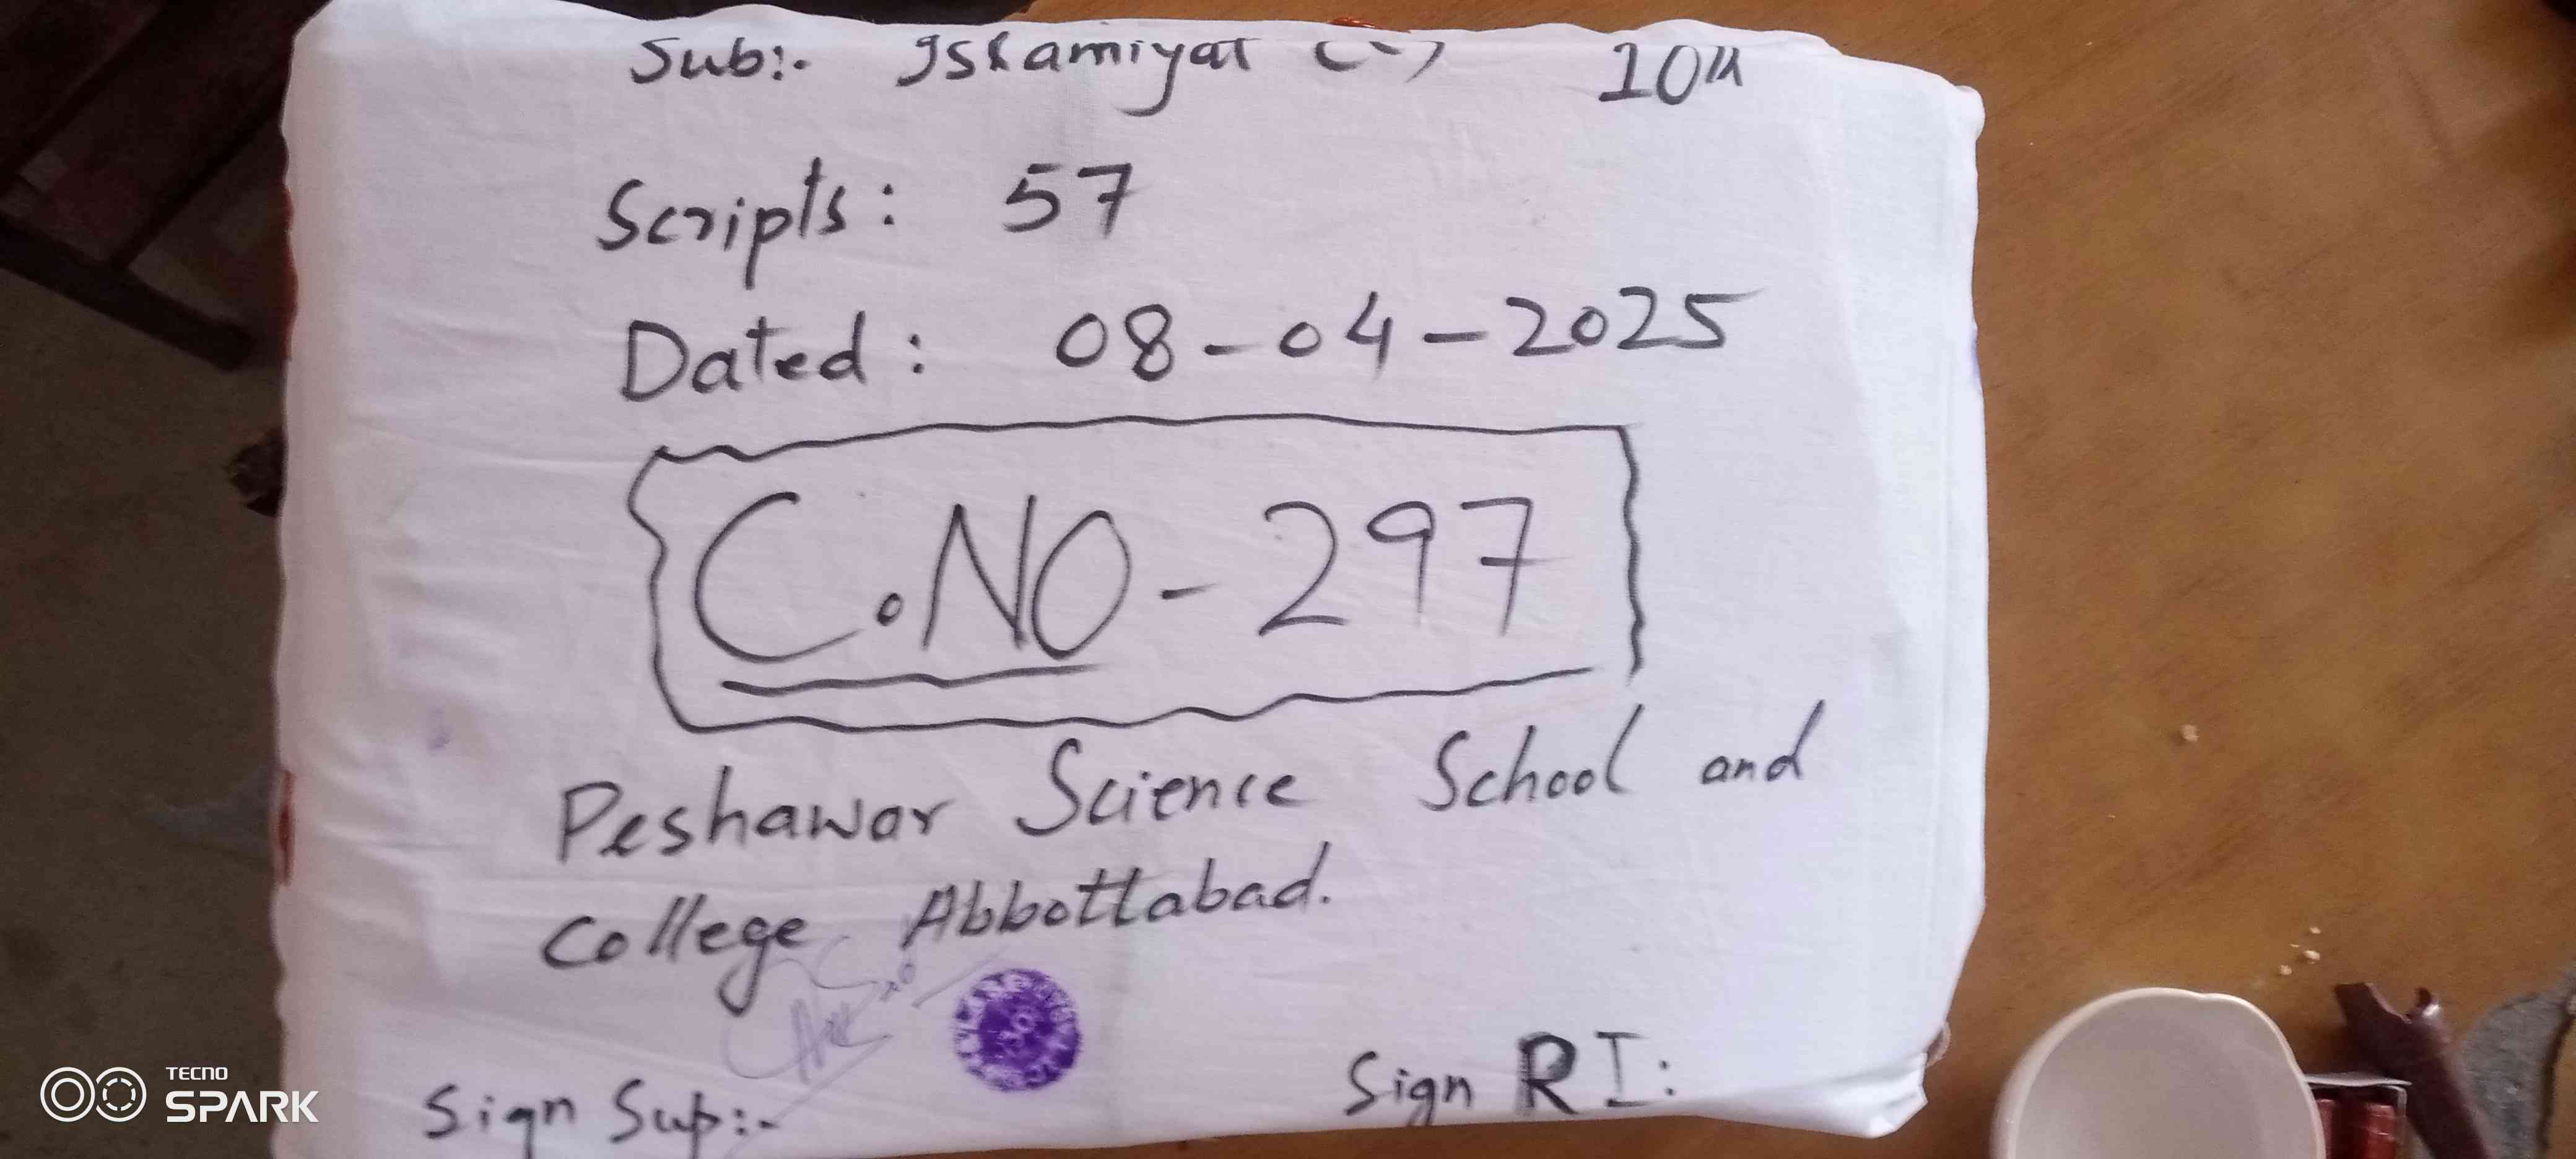 Sub:- Islamiyat 10th
Scripts: 57
Dated: 08-04-2025
C.NO-297
Peshawar Science School and
College Abbottabad.
Sign Sup:-
Sign RI:
TECNO
SPARK